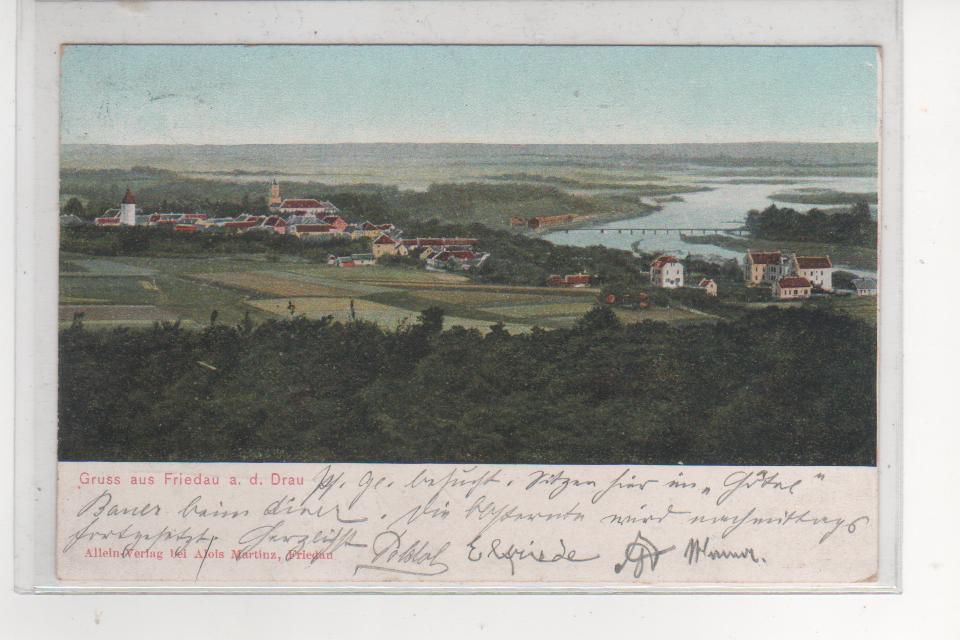 Gruss aus Friedau a. d. Drau
besucht. Sitzen hier im „Hôtel"
Bauer beim Diner. Die wird nachmittags
fortgesetzt. Herzlichst
Allein-Verlag bei Alois Martinz, Friedau
Elfriede